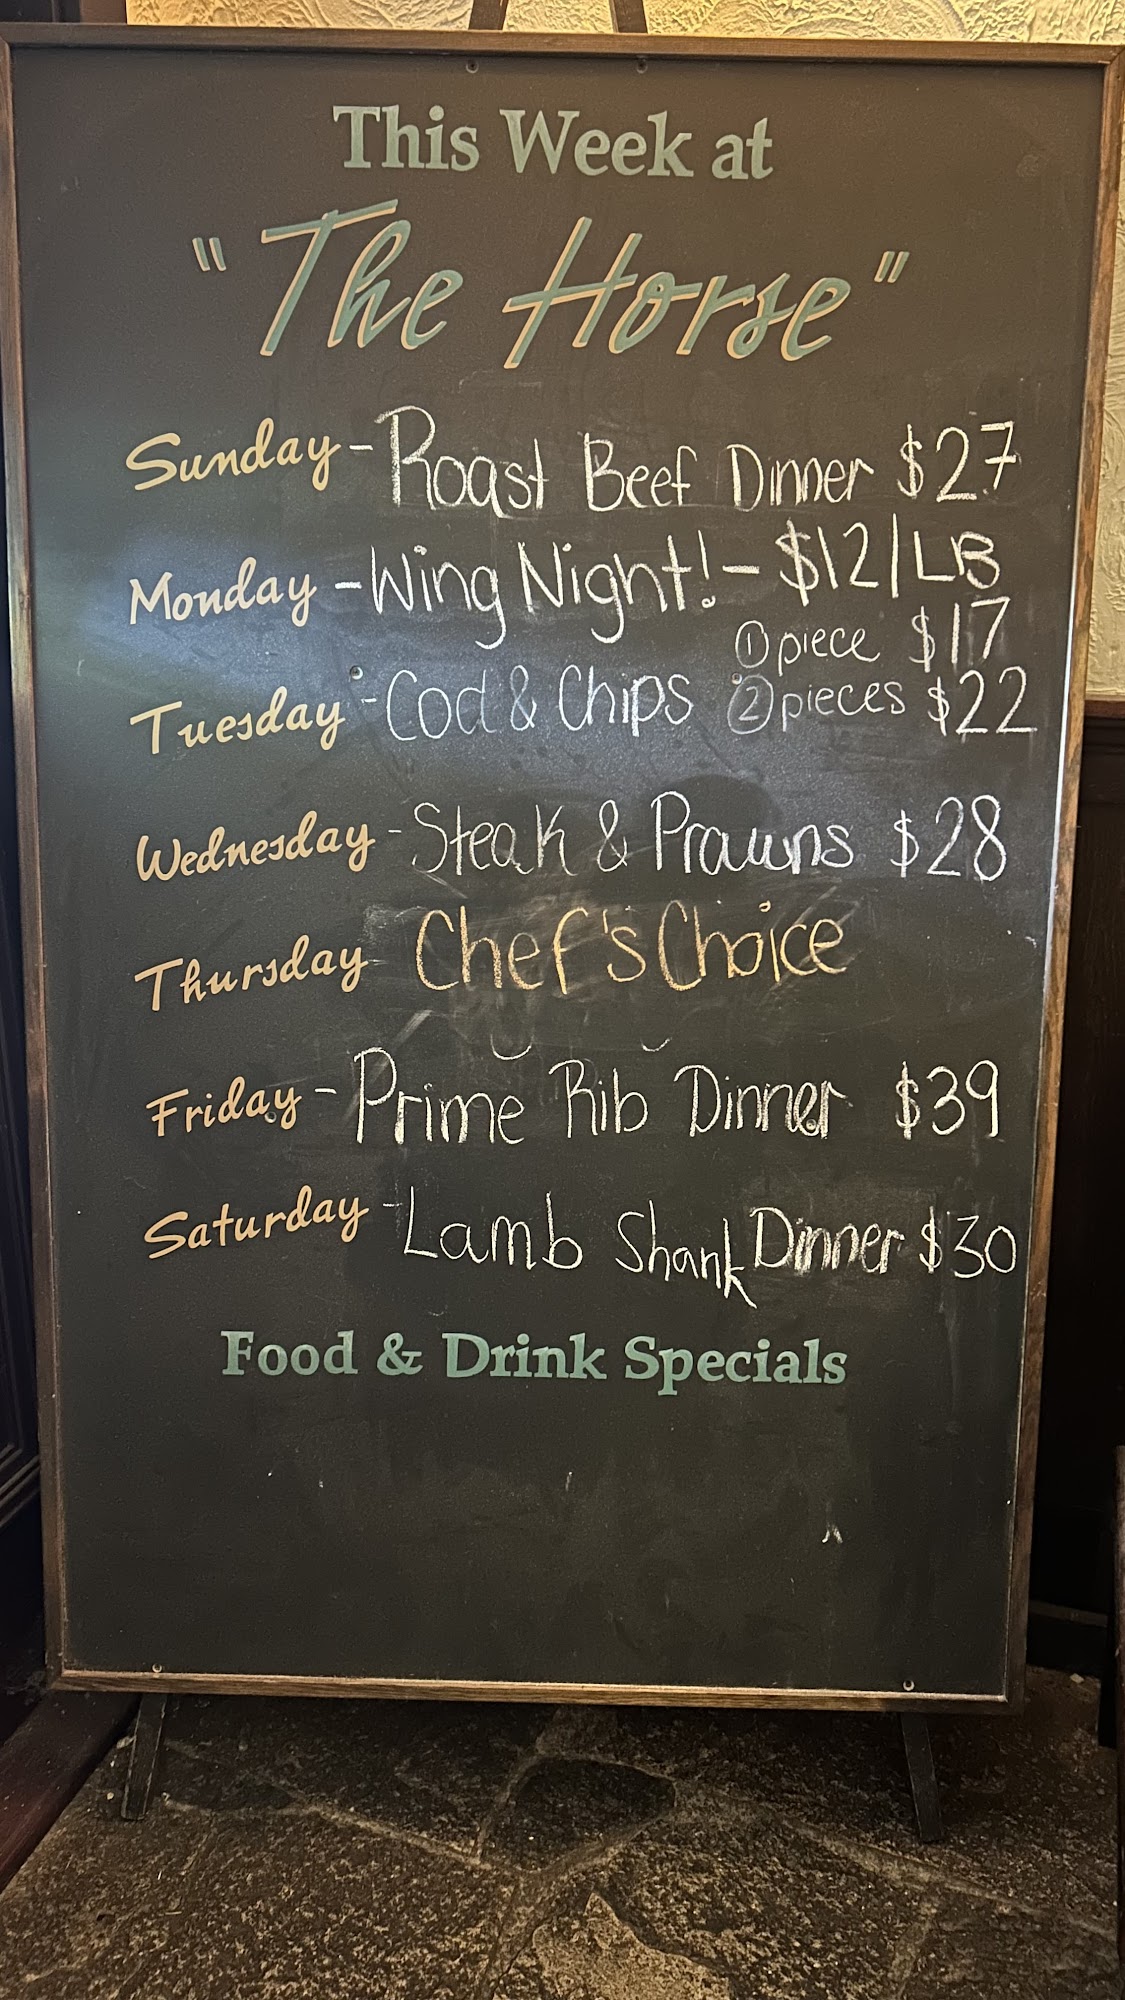 This Week at
"The Horse"
Sunday - Roast Beef Dinner $27
Monday - Wing Night! - $12/LB
Tuesday - Cod & Chips ① piece $17
② pieces $22
Wednesday - Steak & Prawns $28
Thursday Chef's Choice
Friday - Prime Rib Dinner $39
Saturday - Lamb Shank Dinner $30
Food & Drink Specials